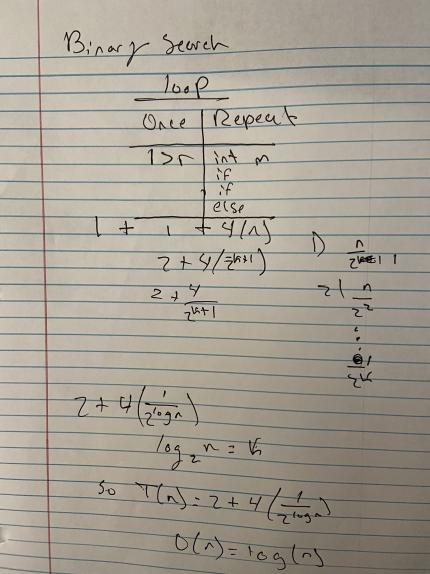 Binary Search
loop
Once | Repeat
l>r | int m
if
if
else
1 + 1 + 4(n)
2 + 4(2^k+1)
2 + 4/2^k+1
1) n/2
2) n/2^2
⋮
2^k
2 + 4(1/2^log n)
log_2 n = k
So T(n) = 2 + 4(1/2^log n)
O(n) = log(n)